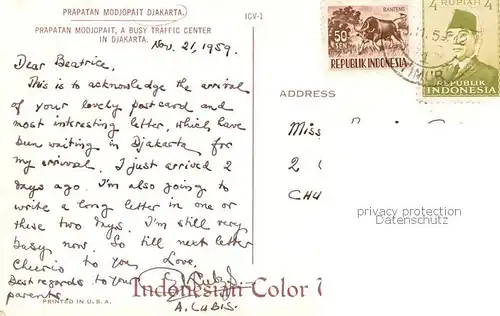 PRAPATAN MODJOPAIT DJAKARTA.
PRAPATAN MODJOPAIT, A BUSY TRAFFIC CENTER
IN DJAKARTA.
ICV-1
Nov. 21, 1959.
Dear Beatrice,
This is to acknowledge the arrival
of your lovely postcard and
most interesting letter, which have
been waiting in Djakarta for
my arrival. I just arrived 2
days ago. I'm also going to
write a long letter in one or
these two days. I'm still very
busy now. So till next letter
Cheerio to you, Love,
Best regards to your
parents.
A. LUBIS.
PRINTED IN U.S.A.
Indonesian Color
BANTENG
50
SEN
REPUBLIK INDONESIA
4 RUPIAH 4
REPUBLIK
INDONESIA
ADDRESS
Miss
2
CHU
privacy protection
Datenschutz